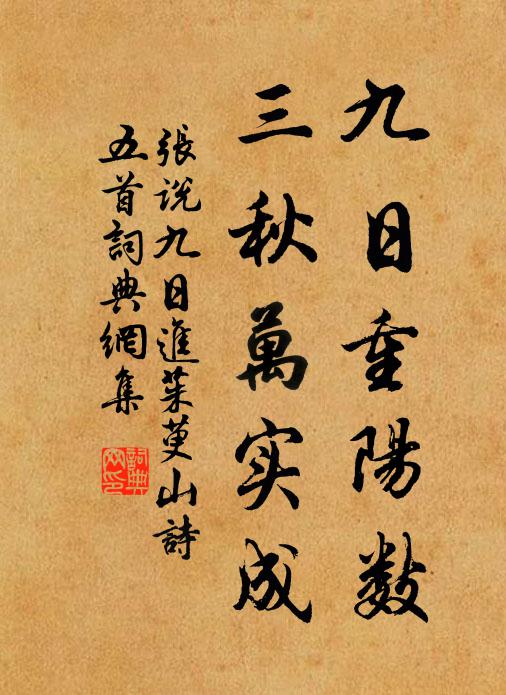 九日重陽数
三秋萬实成
張说九日進茱萸山詩
五首詞典網集
詞典網印